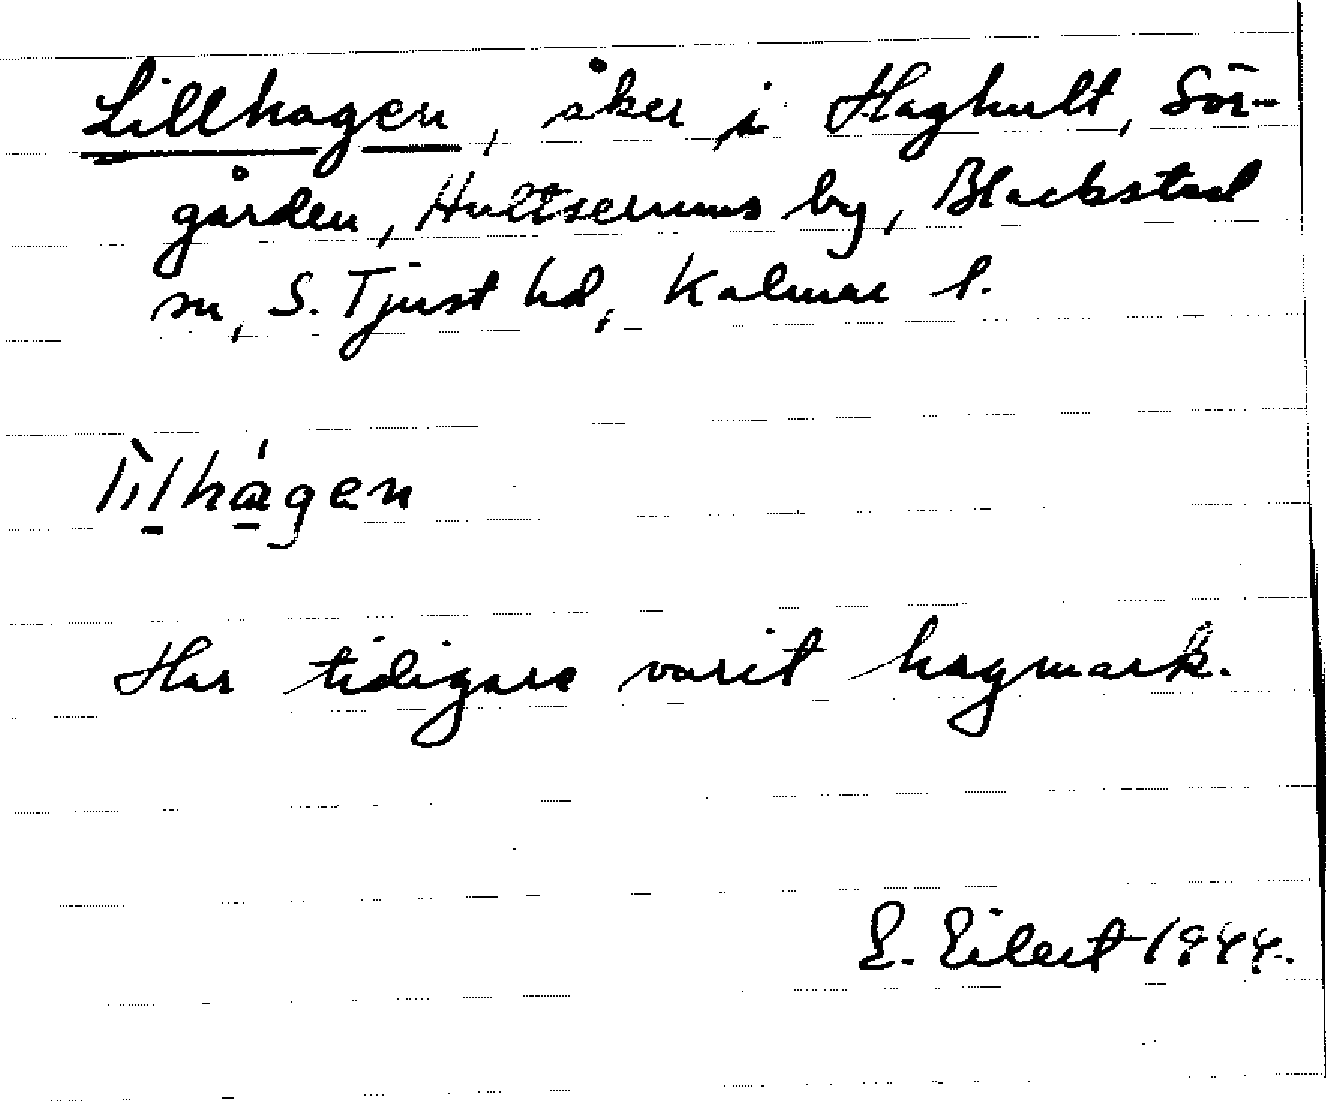 Lillhagen, åker i Haghult, Sör-
gården, Hultserums by, Blackstad
sn, S. Tjust hd, Kalmar l.
lìlhágen
Har tidigare varit hagmark.
E. Eilert 1944.